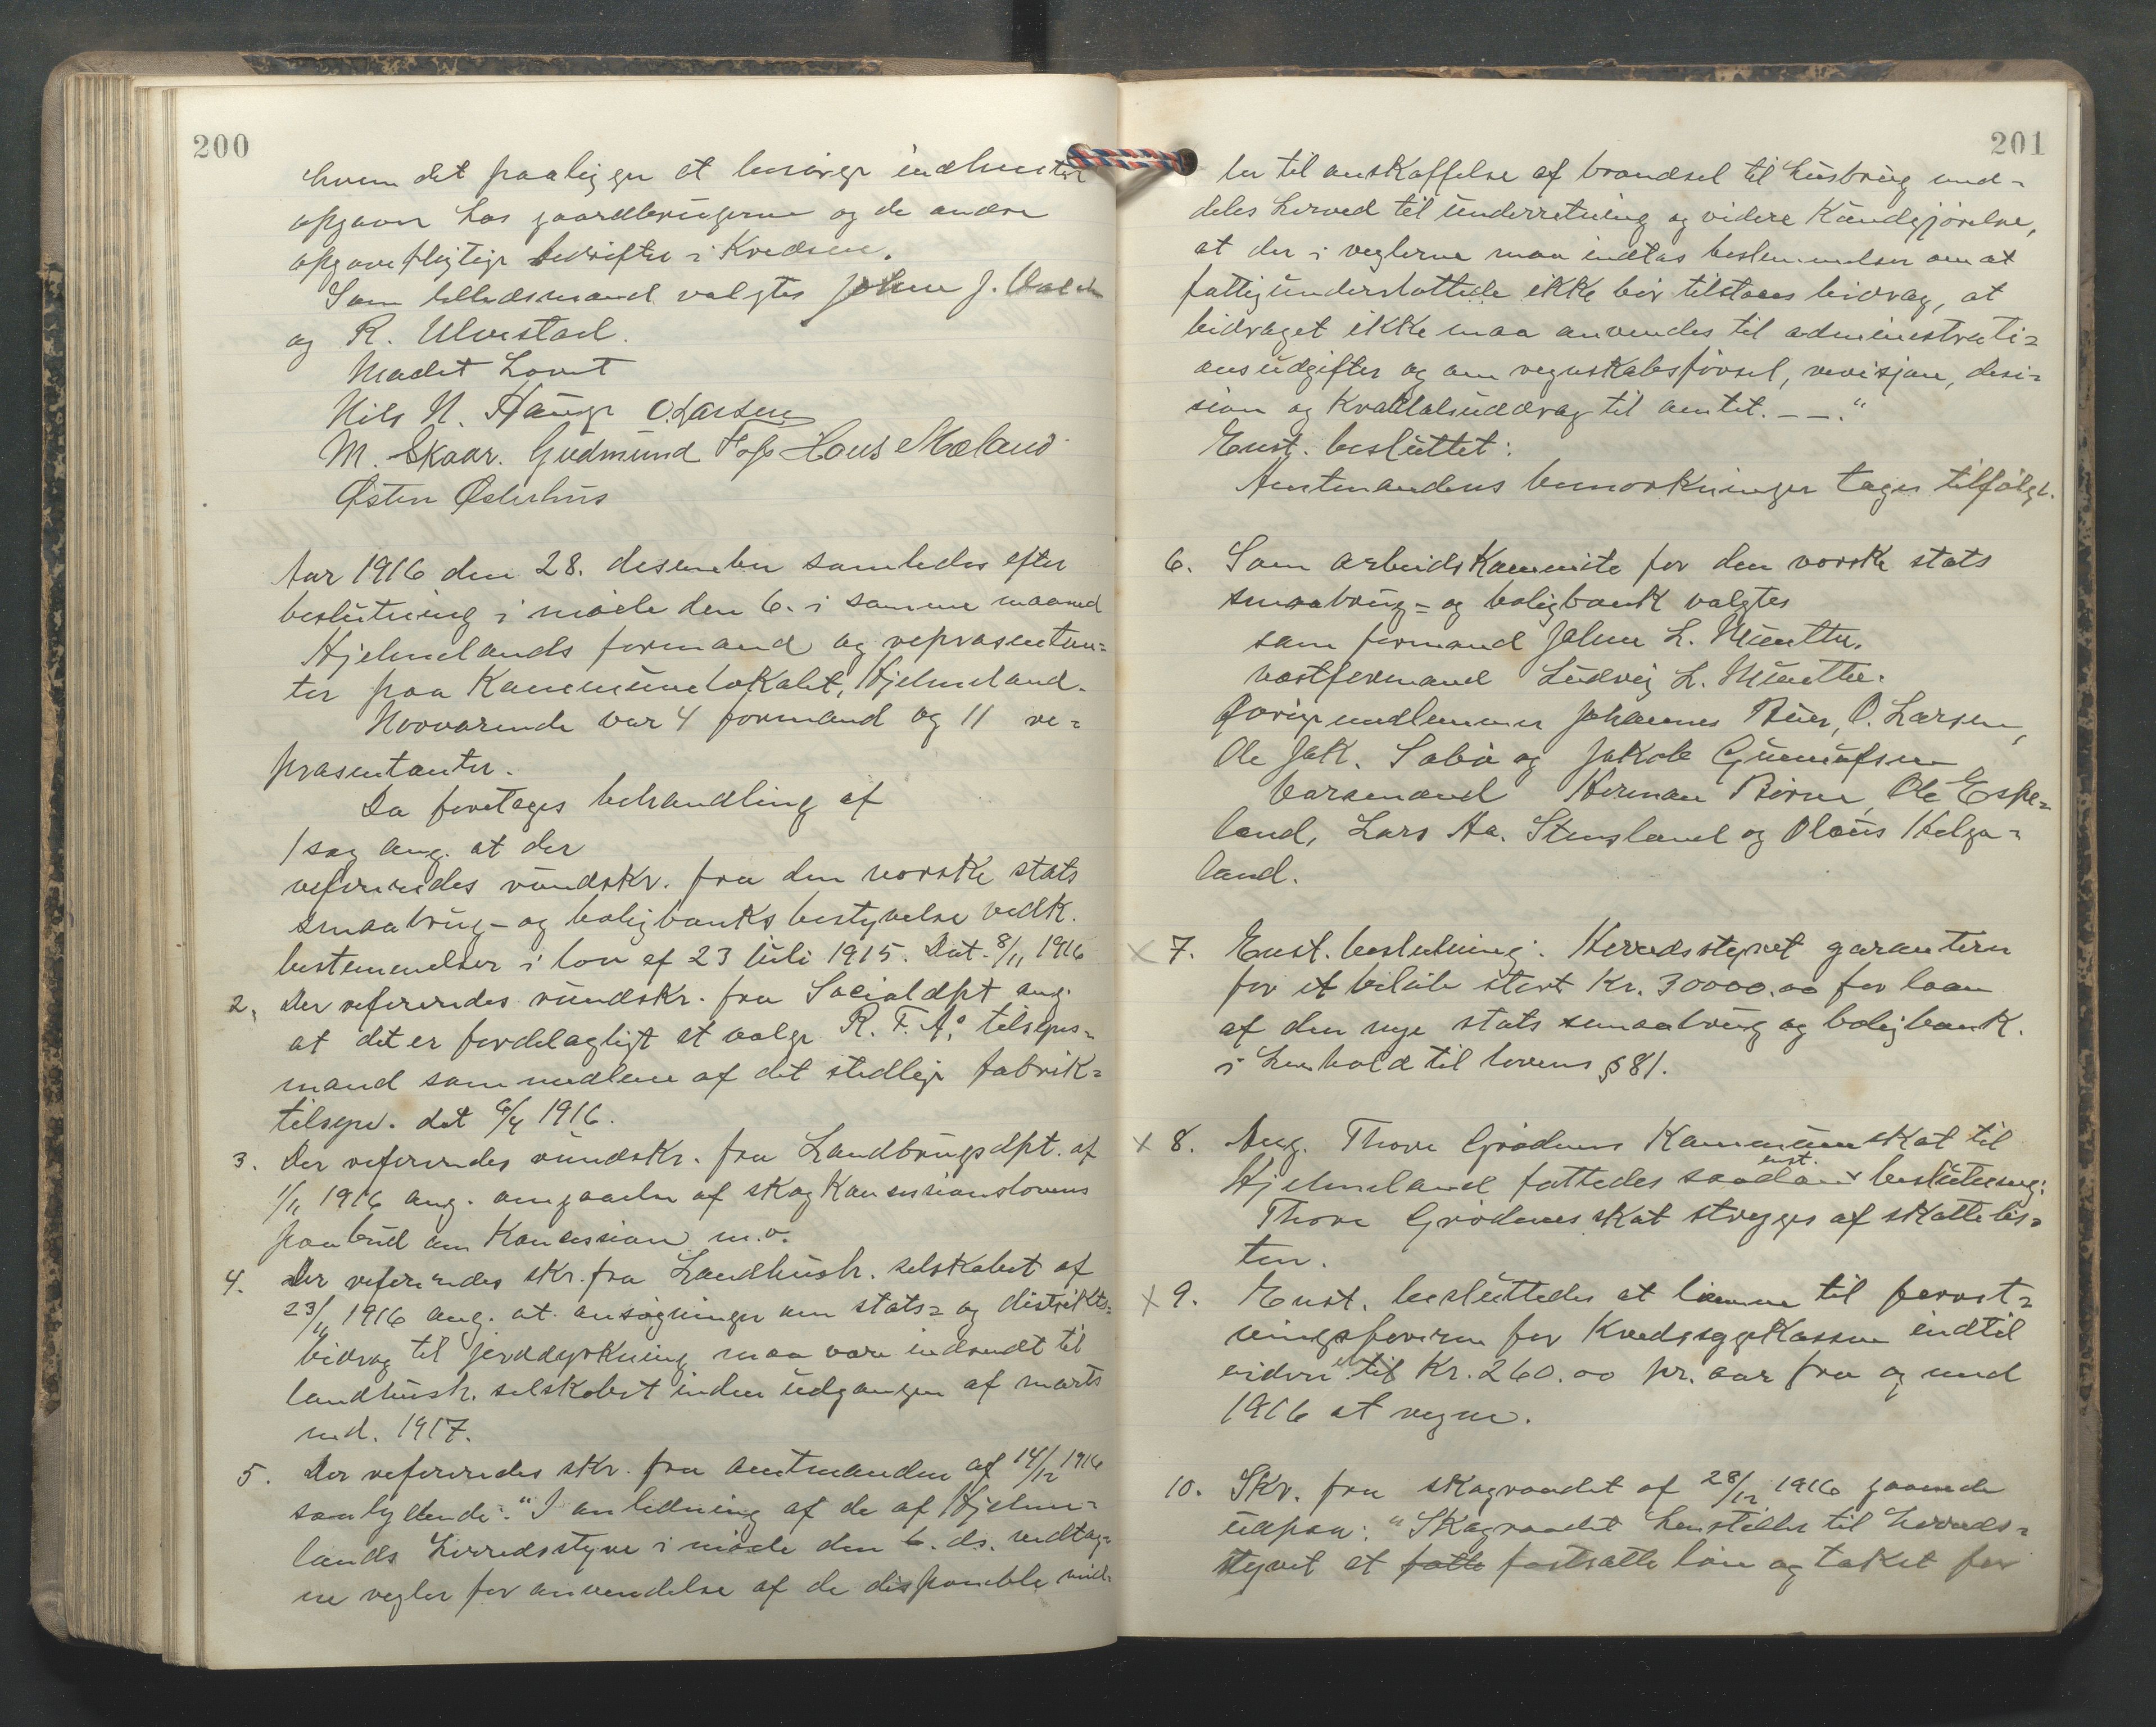 200
hvem det paaligger at besørge indhentet
opgaver hos gaardbrugerne og de andre
opgavepligtige bedrifter i Kredsen.
Som tillidsmænd valgtes John J.
og R. Ulvestad.
Mødet hævet
Nils N. Hauge O. Larsen
M. Skaar. Gudmund Hans Mæland
Østen Østerhus
Aar 1916 den 28. desember samledes efter
beslutning i møde den 6. i samme maaned
Hjelmelands formænd og repræsentan=
ter paa Kommunelokalet, Hjelmeland.
Nærværende var 4 formænd og 11 re=
præsentanter.
Da foretages behandling af
1 sag ang. at der
refereredes rundskr. fra den norske stats
smaabrug- og boligbanks bestyrelse vedk.
bestemmelser i lov af 23 juli 1915. Dat. 8/11 1916
2. Der refereredes rundskr. fra Socialdpt ang.
at det er fordelagtigt at vælge R. F. A.s tilsyns=
mand som medlem af det stedlige fabrik=
tilsyn. dat 6/4 1916.
3. Der refereredes rundskr. fra Landbrugsdpt. af
1/11 1916 ang. omgaaelse af skogkonsesionslovens
paabud om Konsession m.v.
4. Der refereredes skr. fra Landhush. selskabet af
23/11 1916 ang. at ansøgninger om stats= og distrikts=
bidrag til jorddyrkning maa være indsendt til
landhush. selskabet inden udgangen af marts
md. 1917.
5. Der refereredes skr. fra amtmanden af 14/12 1916
saalydende: "I anledning af de af Hjelme=
lands herredsstyre i møde den 6. ds. vedtag=
ne regler for anvendelse af de disponible mid=
201
ler til anskaffelse af brændsel til husbrug med=
deles herved til underretning og videre Kundgjørelse,
at der i reglerne maa indtas bestemmelser om at
fattigunderstøttede ikke bør tilstaaes bidrag, at
bidraget ikke maa anvendes til administrati=
onsudgifter og om regnskabsførsel, revisjon, desi=
sion og Kvartalsuddrag til amtet. – –."
Enst. besluttet:
Amtmandens bemerkninger tages tilfølge.
6. Som arbeidskommite for den norske stats
smaabrug= og boligbank valgtes
som formand Johan L. Munthe.
næstformand Ludvig L. Munthe.
Øvrige medlemmer Johannes Buer, O. Larsen,
Ole Jak. Sabø og Jakob Gunnufsen
Varamænd Herman Børne, Ole Espe=
land, Lars Aa. Stensland og Olaus Helga=
land.
x 7. Enst. beslutning: Herredsstyret garanterer
for et beløb stort Kr. 30000.00 for laan
af den nye stats smaabrug og boligbank.
i henhold til lovens § 81.
x 8. Ang. Thore Grødems Kommuneskat til
Hjelmeland fattedes saadan enst. beslutning:
Thore Grødems skat stryges af skattelis=
ten.
x 9. Enst. besluttedes at lønne til forret=
ningsføreren for Kredssygekassen indtil
videre til Kr. 260.00 pr. aar fra og med
1916 at regne.
10. Skr. fra skograadet af 28/12 1916 gaaende
udpaa: "Skograadet henstiller til herreds=
styret at fatte fastsætte løn og takst for